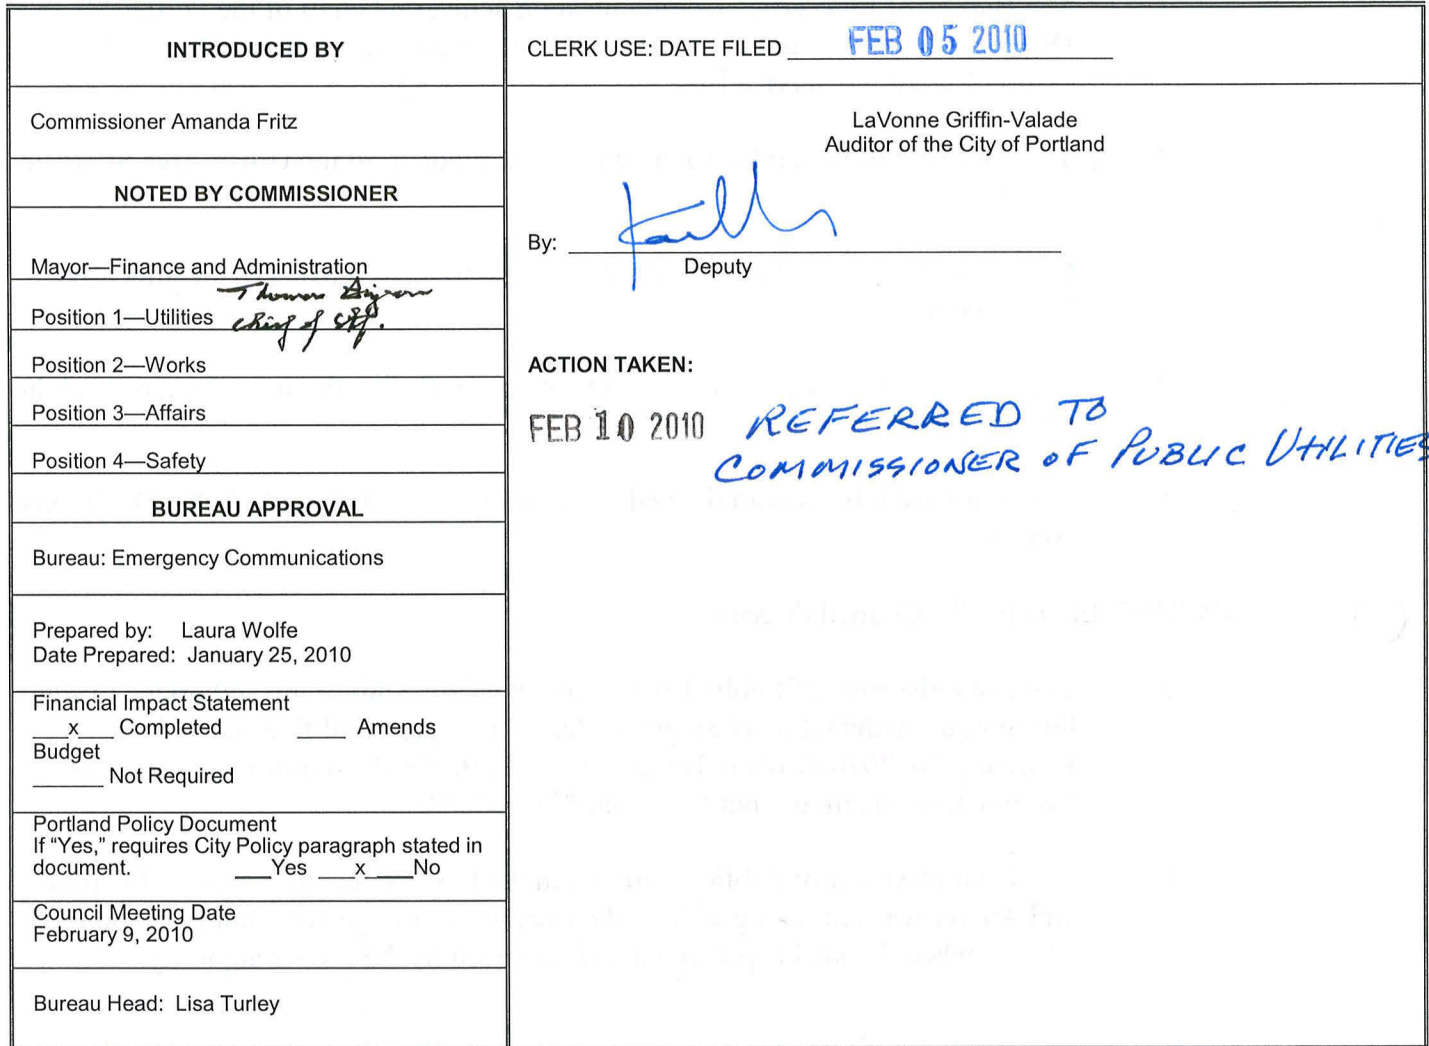 INTRODUCED BY
Commissioner Amanda Fritz
NOTED BY COMMISSIONER
Mayor—Finance and Administration
Thomas
Position 1—Utilities Chief of Stf.
Position 2—Works
Position 3—Affairs
Position 4—Safety
BUREAU APPROVAL
Bureau: Emergency Communications
Prepared by: Laura Wolfe
Date Prepared: January 25, 2010
Financial Impact Statement
___x___ Completed ____ Amends
Budget
______ Not Required
Portland Policy Document
If “Yes,” requires City Policy paragraph stated in
document. ___Yes ___x___No
Council Meeting Date
February 9, 2010
Bureau Head: Lisa Turley
CLERK USE: DATE FILED FEB 05 2010
LaVonne Griffin-Valade
Auditor of the City of Portland
By:
Deputy
ACTION TAKEN:
FEB 10 2010 REFERRED TO
COMMISSIONER OF PUBLIC UTILITIES